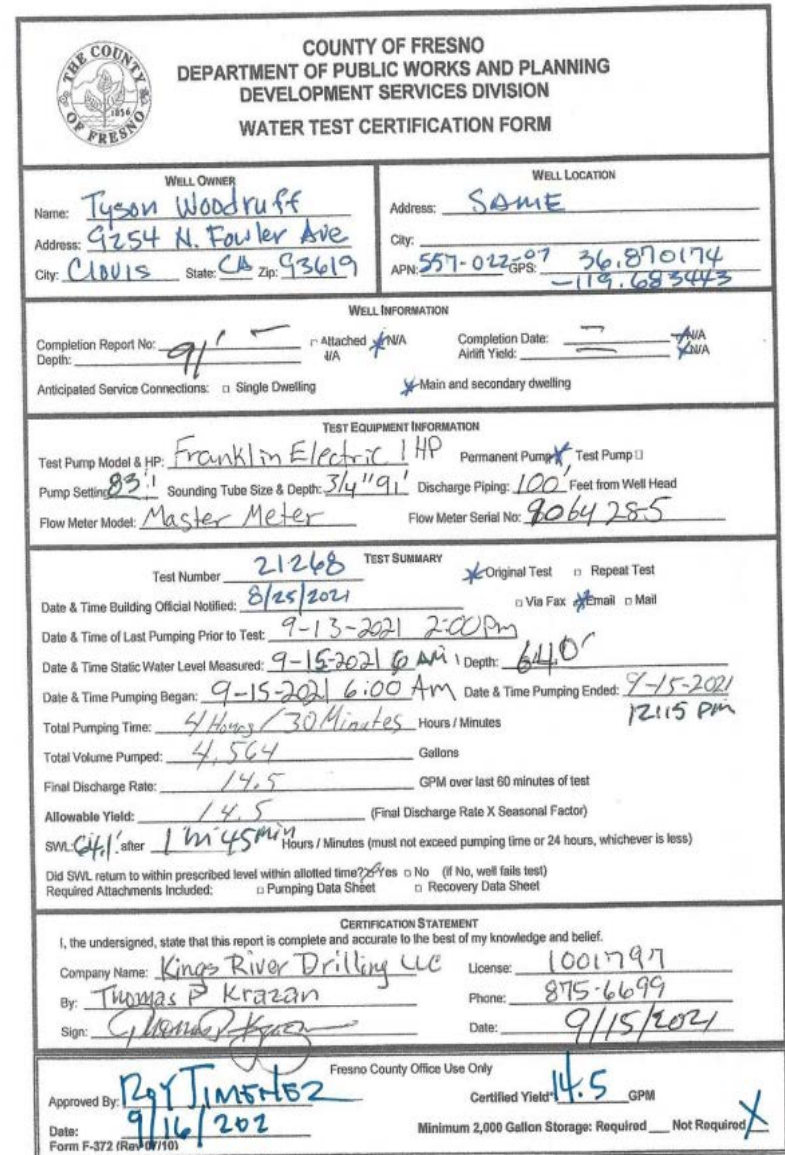 THE COUNTY OF FRESNO
1856
COUNTY OF FRESNO
DEPARTMENT OF PUBLIC WORKS AND PLANNING
DEVELOPMENT SERVICES DIVISION
WATER TEST CERTIFICATION FORM
WELL OWNER
Name: Tyson Woodruff
Address: 9254 N. Fowler Ave
City: Clovis State: CA Zip: 93619
WELL LOCATION
Address: SAME
City:
APN: 557-022-07 GPS: 36.870174
-119.683443
WELL INFORMATION
Completion Report No: — Attached N/A Completion Date: — N/A
Depth: 91' N/A Airlift Yield: — N/A
Anticipated Service Connections: Single Dwelling Main and secondary dwelling
TEST EQUIPMENT INFORMATION
Test Pump Model & HP: Franklin Electric 1 HP Permanent Pump Test Pump
Pump Setting 83' Sounding Tube Size & Depth: 3/4" 91' Discharge Piping: 100' Feet from Well Head
Flow Meter Model: Master Meter Flow Meter Serial No: 9064285
TEST SUMMARY
Test Number 21268 Original Test Repeat Test
Date & Time Building Official Notified: 8/25/2021 Via Fax Email Mail
Date & Time of Last Pumping Prior to Test: 9-13-2021 2:00 Pm
Date & Time Static Water Level Measured: 9-15-2021 6 AM Depth: 64.0'
Date & Time Pumping Began: 9-15-2021 6:00 Am Date & Time Pumping Ended: 9-15-2021
12:15 pm
Total Pumping Time: 4 Hours / 30 Minutes Hours / Minutes
Total Volume Pumped: 4,564 Gallons
Final Discharge Rate: 14.5 GPM over last 60 minutes of test
Allowable Yield: 14.5 (Final Discharge Rate X Seasonal Factor)
SWL: 64.1' after 1 45 min Hours / Minutes (must not exceed pumping time or 24 hours, whichever is less)
Did SWL return to within prescribed level within allotted time? Yes No (if No, well fails test)
Required Attachments Included: Pumping Data Sheet Recovery Data Sheet
CERTIFICATION STATEMENT
I, the undersigned, state that this report is complete and accurate to the best of my knowledge and belief.
Company Name: Kings River Drilling LLC License: 1001797
By: Thomas P Krazan Phone: 875-6699
Sign: Date: 9/15/2021
Fresno County Office Use Only
Approved By: ROY JIMENEZ Certified Yield* 14.5 GPM
Date: 9/16/202 Minimum 2,000 Gallon Storage: Required Not Required X
Form F-372 (Rev 07/10)